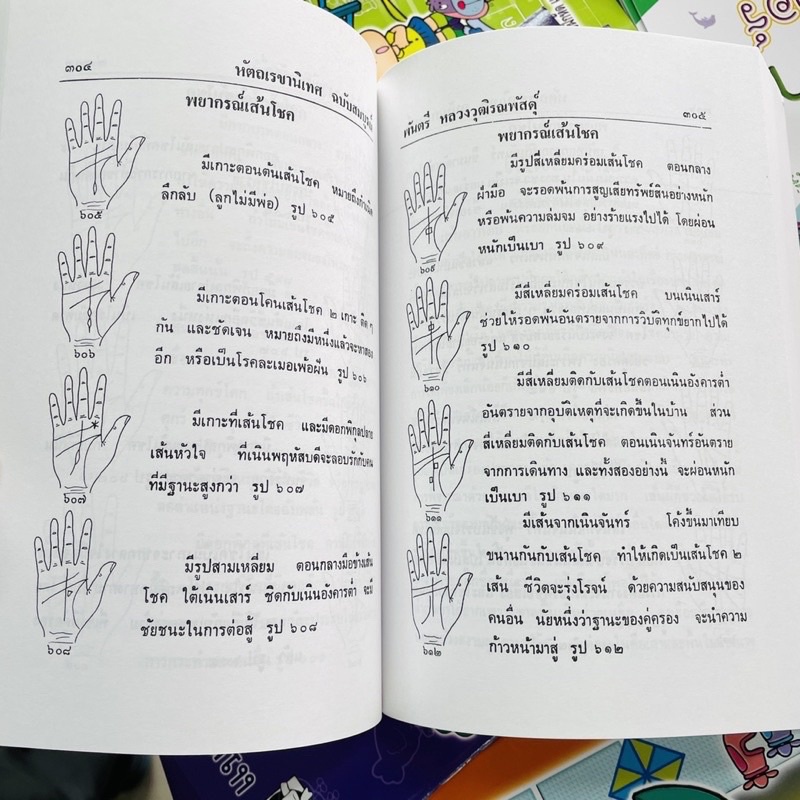 ๓๐๔
หัตถเรขานิเทศ ฉบับสมบูรณ์
พยากรณ์เส้นโชค
มีเกาะตอนต้นเส้นโชค หมายถึงกำเนิด
ลึกลับ (ลูกไม่มีพ่อ) รูป ๖๐๕
๖๐๕
มีเกาะตอนโคนเส้นโชค ๒ เกาะ ติด ๆ
กัน และชัดเจน หมายถึงมีหนึ่งแล้วจะหาสอง
อีก หรือเป็นโรคละเมอเพ้อฝัน รูป ๖๐๖
๖๐๖
มีเกาะที่เส้นโชค และมีดอกพิกุลปลาย
เส้นหัวใจ ที่เนินพฤหัสบดีจะลอบรักกับคน
ที่มีฐานะสูงกว่า รูป ๖๐๗
๖๐๗
มีรูปสามเหลี่ยม ตอนกลางมือข้างเส้น
โชค ใต้เนินเสาร์ ชิดกับเนินอังคารต่ำ จะมี
ชัยชนะในการต่อสู้ รูป ๖๐๘
๖๐๘
พันตรี หลวงวุฒิรณพัสดุ์
๓๐๕
พยากรณ์เส้นโชค
มีรูปสี่เหลี่ยมคร่อมเส้นโชค ตอนกลาง
ฝ่ามือ จะรอดพ้นการสูญเสียทรัพย์สินอย่างหนัก
หรือพ้นความล่มจม อย่างร้ายแรงไปได้ โดยผ่อน
หนักเป็นเบา รูป ๖๐๙
๖๐๙
มีสี่เหลี่ยมคร่อมเส้นโชค บนเนินเสาร์
ช่วยให้รอดพ้นอันตรายจากการวิบัติทุกข์ยากไปได้
รูป ๖๑๐
๖๑๐
มีสี่เหลี่ยมติดกับเส้นโชคตอนเนินอังคารต่ำ
อันตรายจากอุบัติเหตุที่จะเกิดขึ้นในบ้าน ส่วน
สี่เหลี่ยมติดกับเส้นโชค ตอนเนินจันทร์อันตราย
จากการเดินทาง และทั้งสองอย่างนี้ จะผ่อนหนัก
เป็นเบา รูป ๖๑๑
๖๑๑
มีเส้นจากเนินจันทร์ โค้งขึ้นมาเทียบ
ขนานกันกับเส้นโชค ทำให้เกิดเป็นเส้นโชค ๒
เส้น ชีวิตจะรุ่งโรจน์ ด้วยความสนับสนุนของ
คนอื่น นัยหนึ่งว่าฐานะของคู่ครอง จะนำความ
ก้าวหน้ามาสู่ รูป ๖๑๒
๖๑๒